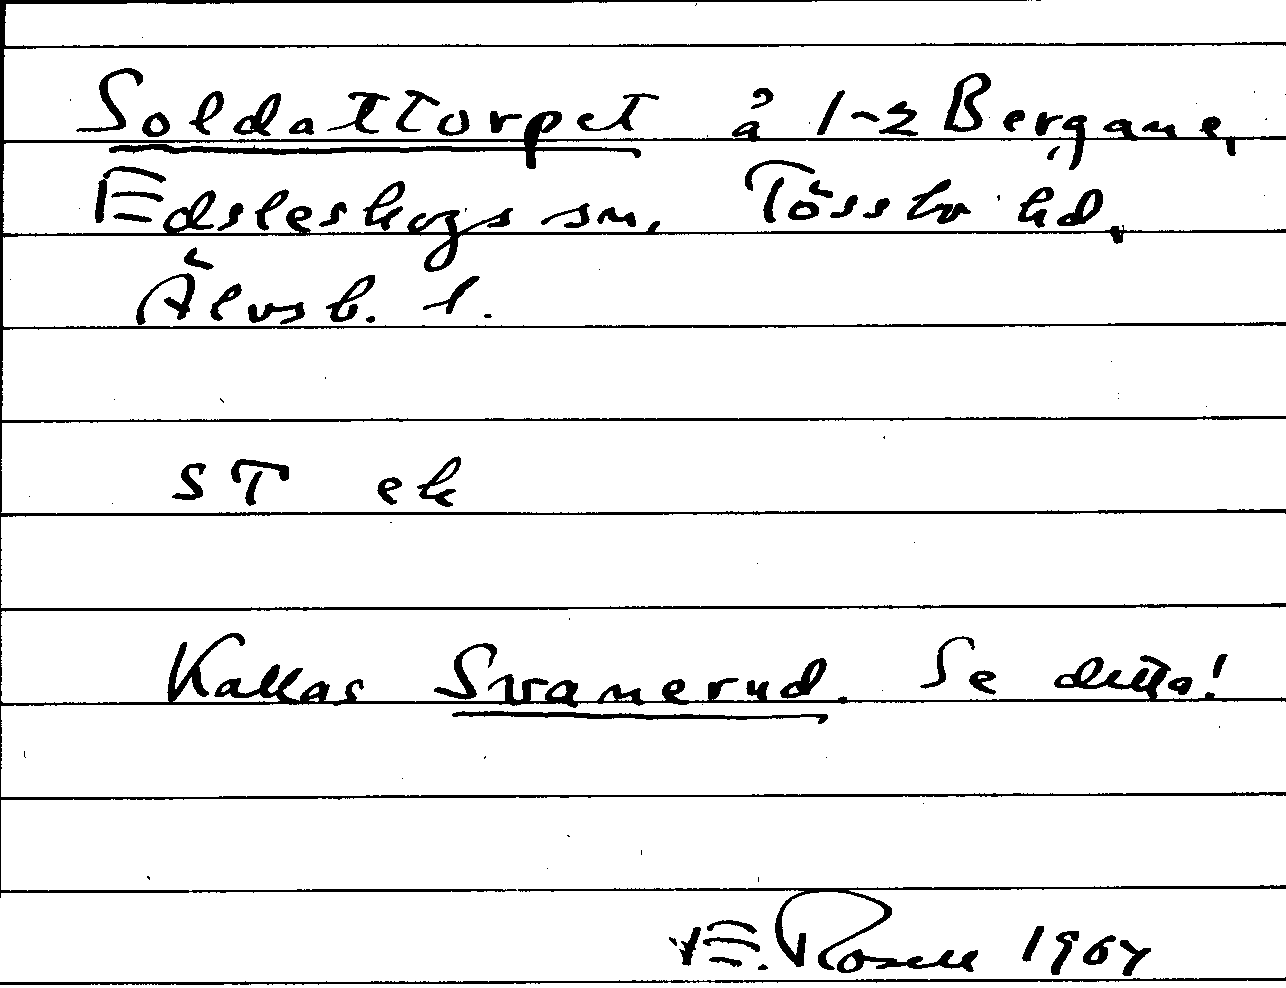 Soldattorpet å 1-2 Bergane,
Edsleskogs sn. Tössbo hd,
Älvsb. l.
ST ek
Kallas Svanerud. Se detta!
E. Rosell 1967